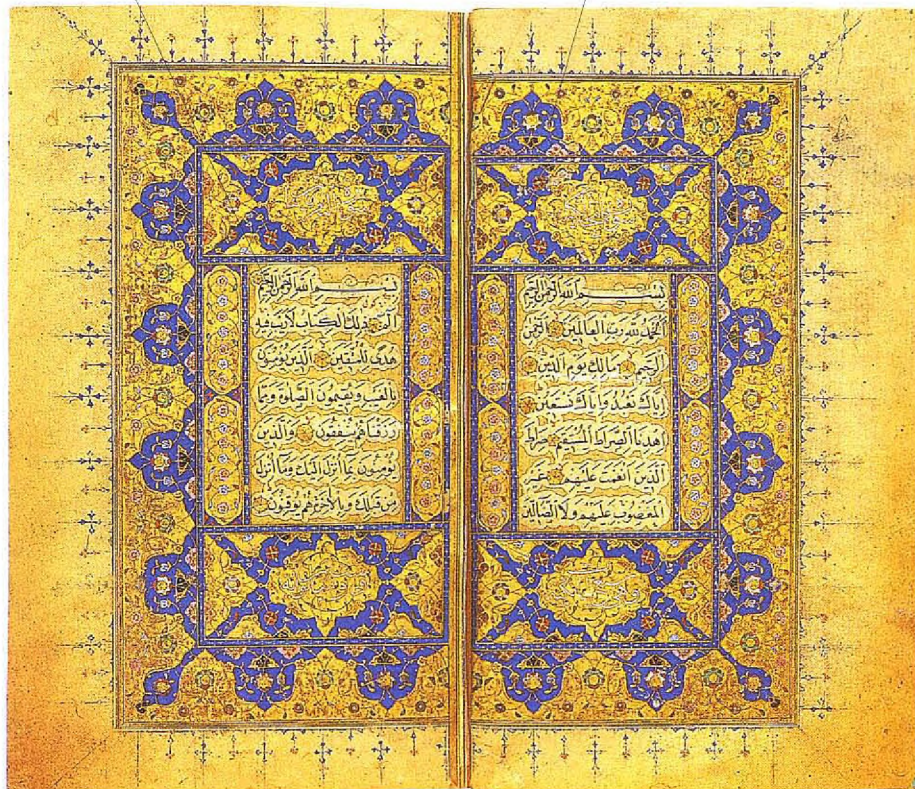 بِسْمِ اللهِ الرَّحْمٰنِ الرَّحِيمِ
اَلْحَمْدُ لِلّٰهِ رَبِّ الْعَالَمِينَ الرَّحْمٰنِ
الرَّحِيمِ مَالِكِ يَوْمِ الدِّينِ
اِيَّاكَ نَعْبُدُ وَاِيَّاكَ نَسْتَعِينُ
اِهْدِنَا الصِّرَاطَ الْمُسْتَقِيمَ صِرَاطَ
الَّذِينَ اَنْعَمْتَ عَلَيْهِمْ غَيْرِ
الْمَغْضُوبِ عَلَيْهِمْ وَلَا الضَّالِّينَ
بِسْمِ اللهِ الرَّحْمٰنِ الرَّحِيمِ
الٓمٓ ذٰلِكَ الْكِتَابُ لَا رَيْبَ فِيهِ
هُدًى لِلْمُتَّقِينَ الَّذِينَ يُؤْمِنُونَ
بِالْغَيْبِ وَيُقِيمُونَ الصَّلٰوةَ وَمِمَّا
رَزَقْنَاهُمْ يُنْفِقُونَ وَالَّذِينَ
يُؤْمِنُونَ بِمَا اُنْزِلَ اِلَيْكَ وَمَا اُنْزِلَ
مِنْ قَبْلِكَ وَبِالْاٰخِرَةِ هُمْ يُوقِنُونَ